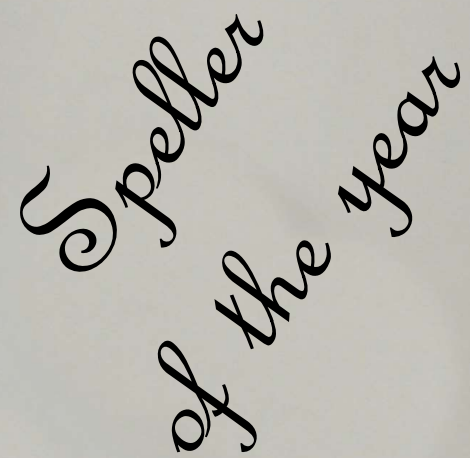 Speller
of the year